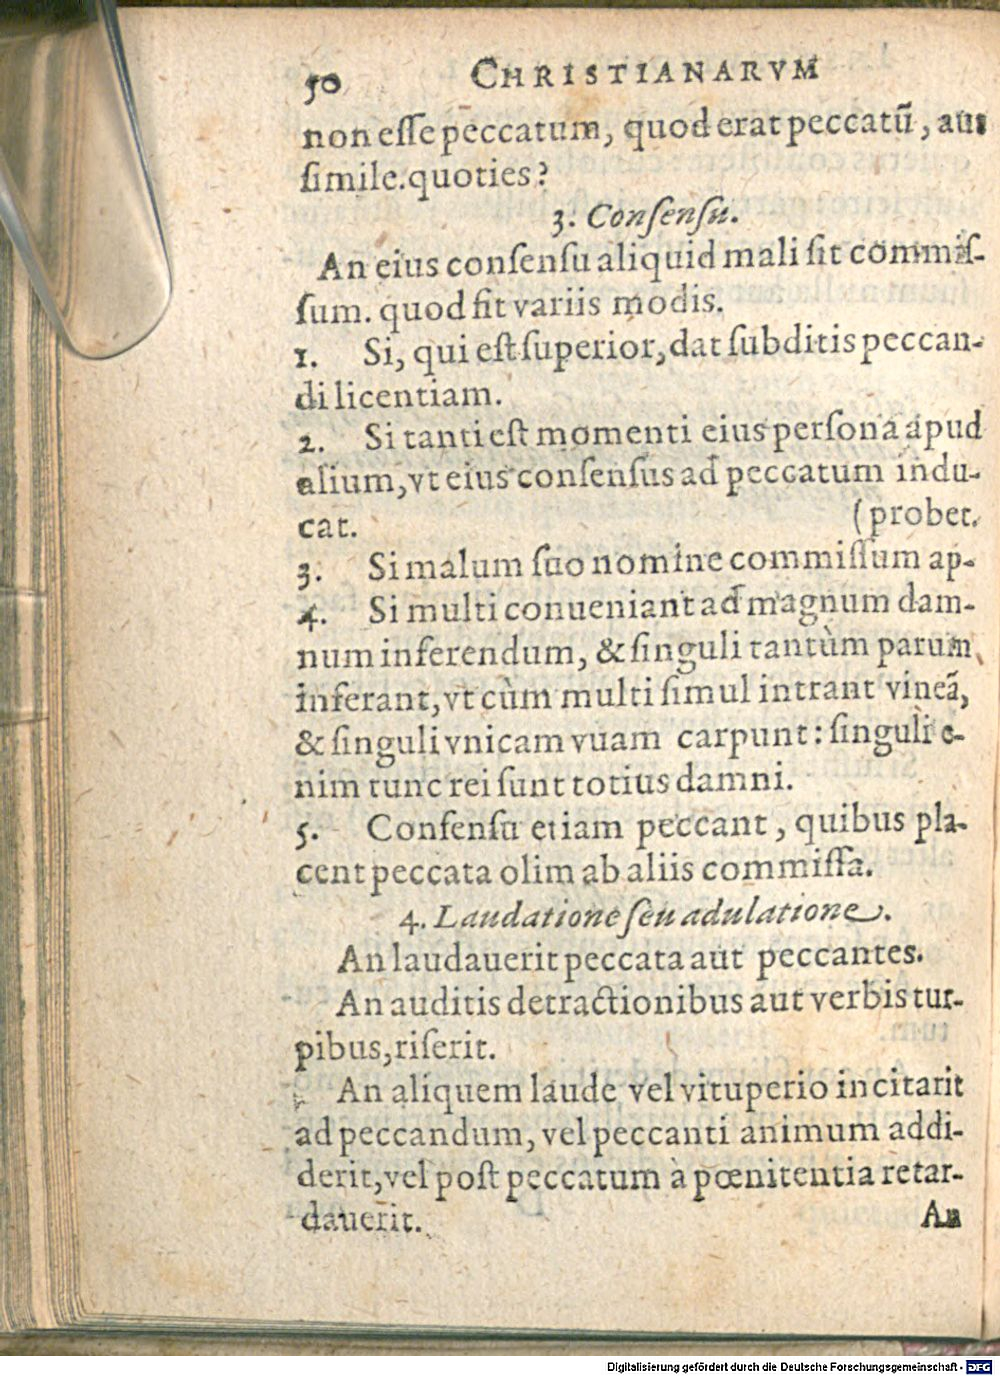 50 CHRISTIANARVM
non esse peccatum, quod erat peccatũ, aut
simile. quoties?
3. Consensu.
An eius consensu aliquid mali sit commis-
sum. quod fit variis modis.
1. Si, qui est superior, dat subditis peccan-
di licentiam.
2. Si tanti est momenti eius persona apud
alium, vt eius consensus ad peccatum indu-
cat. (probet.
3. Si malum suo nomine commissum ap-
4. Si multi conueniant ad magnum dam-
num inferendum, & singuli tantùm parum
inferant, vt cùm multi simul intrant vineã,
& singuli vnicam vuam carpunt: singuli e-
nim tunc rei sunt totius damni.
5. Consensu etiam peccant, quibus pla-
cent peccata olim ab aliis commissa.
4. Laudatione seu adulatione.
An laudauerit peccata aut peccantes.
An auditis detractionibus aut verbis tur-
pibus, riserit.
An aliquem laude vel vituperio incitarit
ad peccandum, vel peccanti animum addi-
derit, vel post peccatum à pœnitentia retar-
dauerit. An
Digitalisierung gefördert durch die Deutsche Forschungsgemeinschaft - DFG